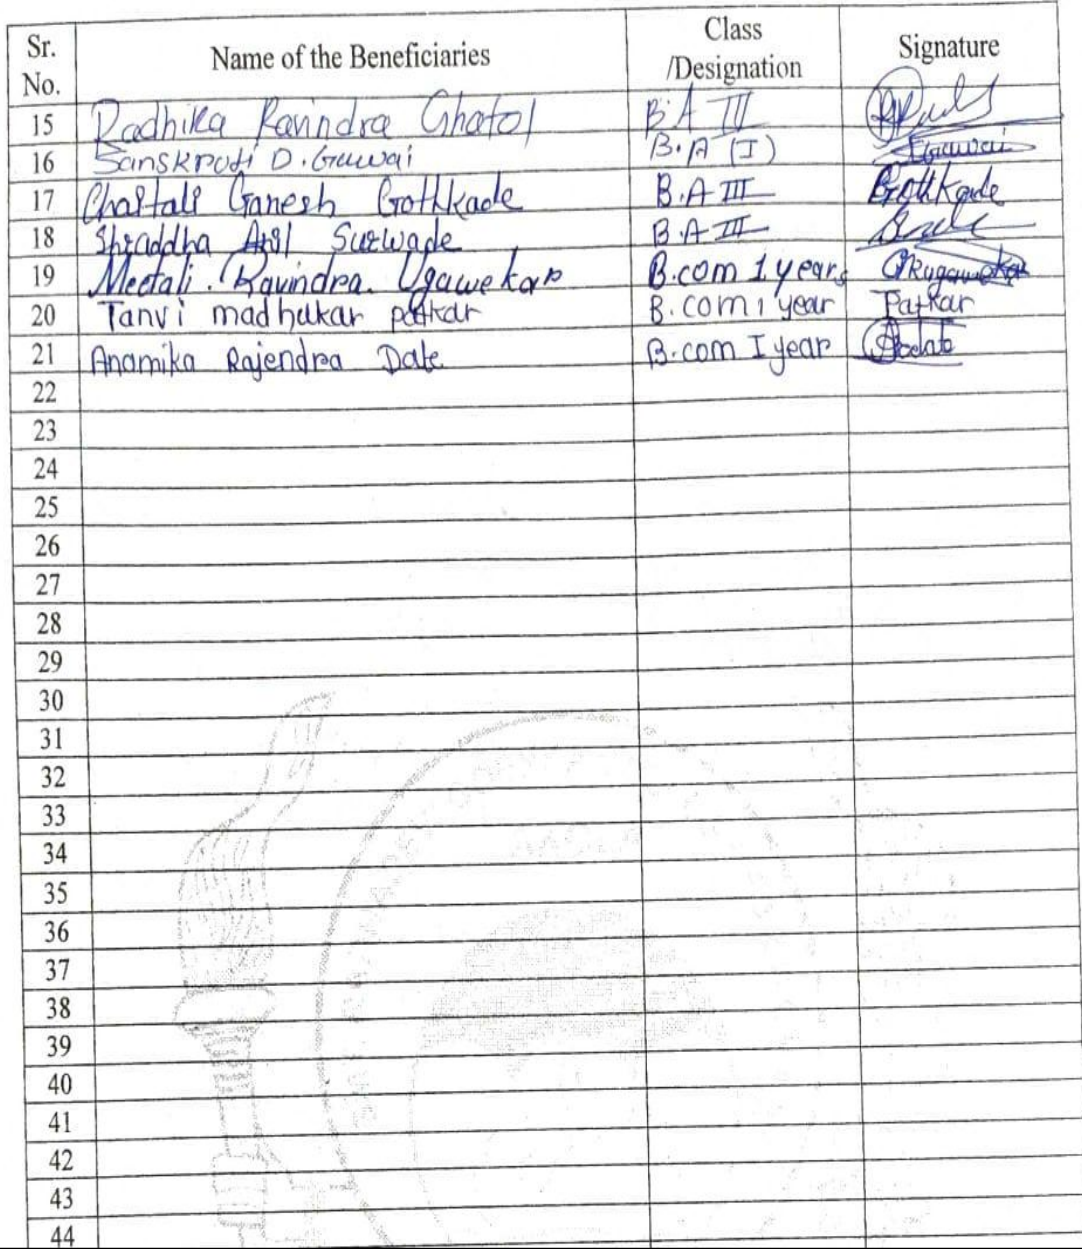 Sr. No. Name of the Beneficiaries Class /Designation Signature
15 Radhika Ravindra Ghatol B.A III
16 Sanskruti D. Gawai B.A (I) Gawai
17 Chaitali Ganesh Gotkhade B.A III
18 Shraddha Anil Surwade B.A III
19 Meetali. Ravindra. Ugawekar B.com 1 year
20 Tanvi madhukar patkar B.com 1 year Patkar
21 Anamika Rajendra Date B.com I year
22
23
24
25
26
27
28
29
30
31
32
33
34
35
36
37
38
39
40
41
42
43
44